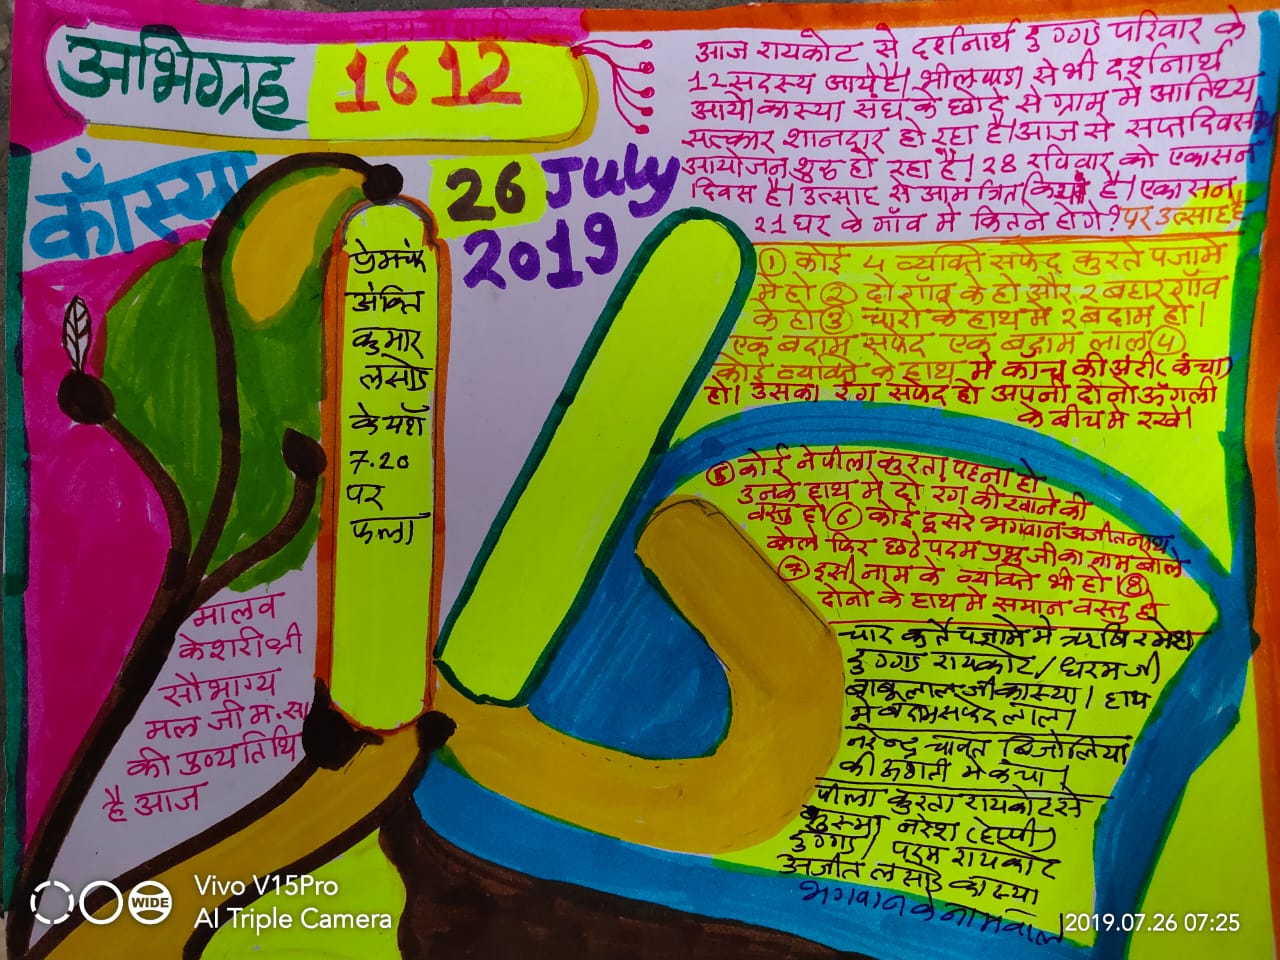 अभिग्रह
1612
काँस्या
26 July
2019
आज रायकोट से दर्शनार्थ डुग्गड परिवार के
12 सदस्य आये है। भीलवाडा से भी दर्शनार्थ
आये। कास्या संघ के छोटे से ग्राम मे आतिथ्य
सत्कार शानदार हो रहा है। आज से सप्त दिवसीय
आयोजन शुरु हो रहा है। 28 रविवार को एकासन
दिवस है। उत्साह से आमत्रित किया है। एकासन
21 घर के गाँव मे कितने होगे? पर उत्साह है
① कोई 4 व्यक्ति सफेद कुरते पजामे
मे हो ② दो गाँव के हो और २ बहार गाँव
के हो ③ चारो के हाथ मे २ बदाम हो।
एक बदाम सफेद एक बदाम लाल ④
कोई व्यक्ति के हाथ मे काच की अंटी (कंचा)
हो। उसका रंग सफेद हो अपनी दोनो ऊँगली
के बीच मे रखे।
⑤ कोई ने पीला कुरता पहना हो
उनके हाथ मे दो रंग की खाने की
वस्तु हो ⑥ कोई दूसरे भगवान अजीतनाथ
बोले फिर छठे पदम प्रभु जी का नाम बोले
⑦ इसी नाम के व्यक्ति भी हो ⑧
दोनो के हाथ मे समान वस्तु हो
चार कुर्ते पजामे मे ऋषि रमेश
डुग्गड रायकोट / धरम जी
बाबूलाल जी कास्या। हाथ
मे बदाम सफेद लाल।
नरेन्द्र चावत बिजोलिया
की ऊंगली मे कंचा।
पीला कुरता रायकोट से
सुस्मा नरेश (हेप्पी)
डुग्गड। पदम रायकोट
अजीत लसोड कास्या
भगवान के नाम वाले
प्रेमचंद
अंकित
कुमार
लसोड
के यहाँ
7.20
पर
फला
मालव
केशरी श्री
सौभाग्य
मल जी म.सा
की पुण्यतिथि
है आज
Vivo V15Pro
AI Triple Camera
WIDE
2019.07.26 07:25